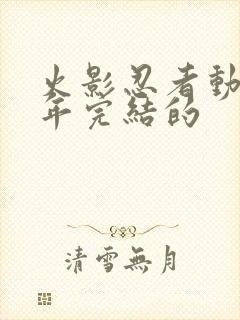 火影忍者動
年完結的
清雪無月